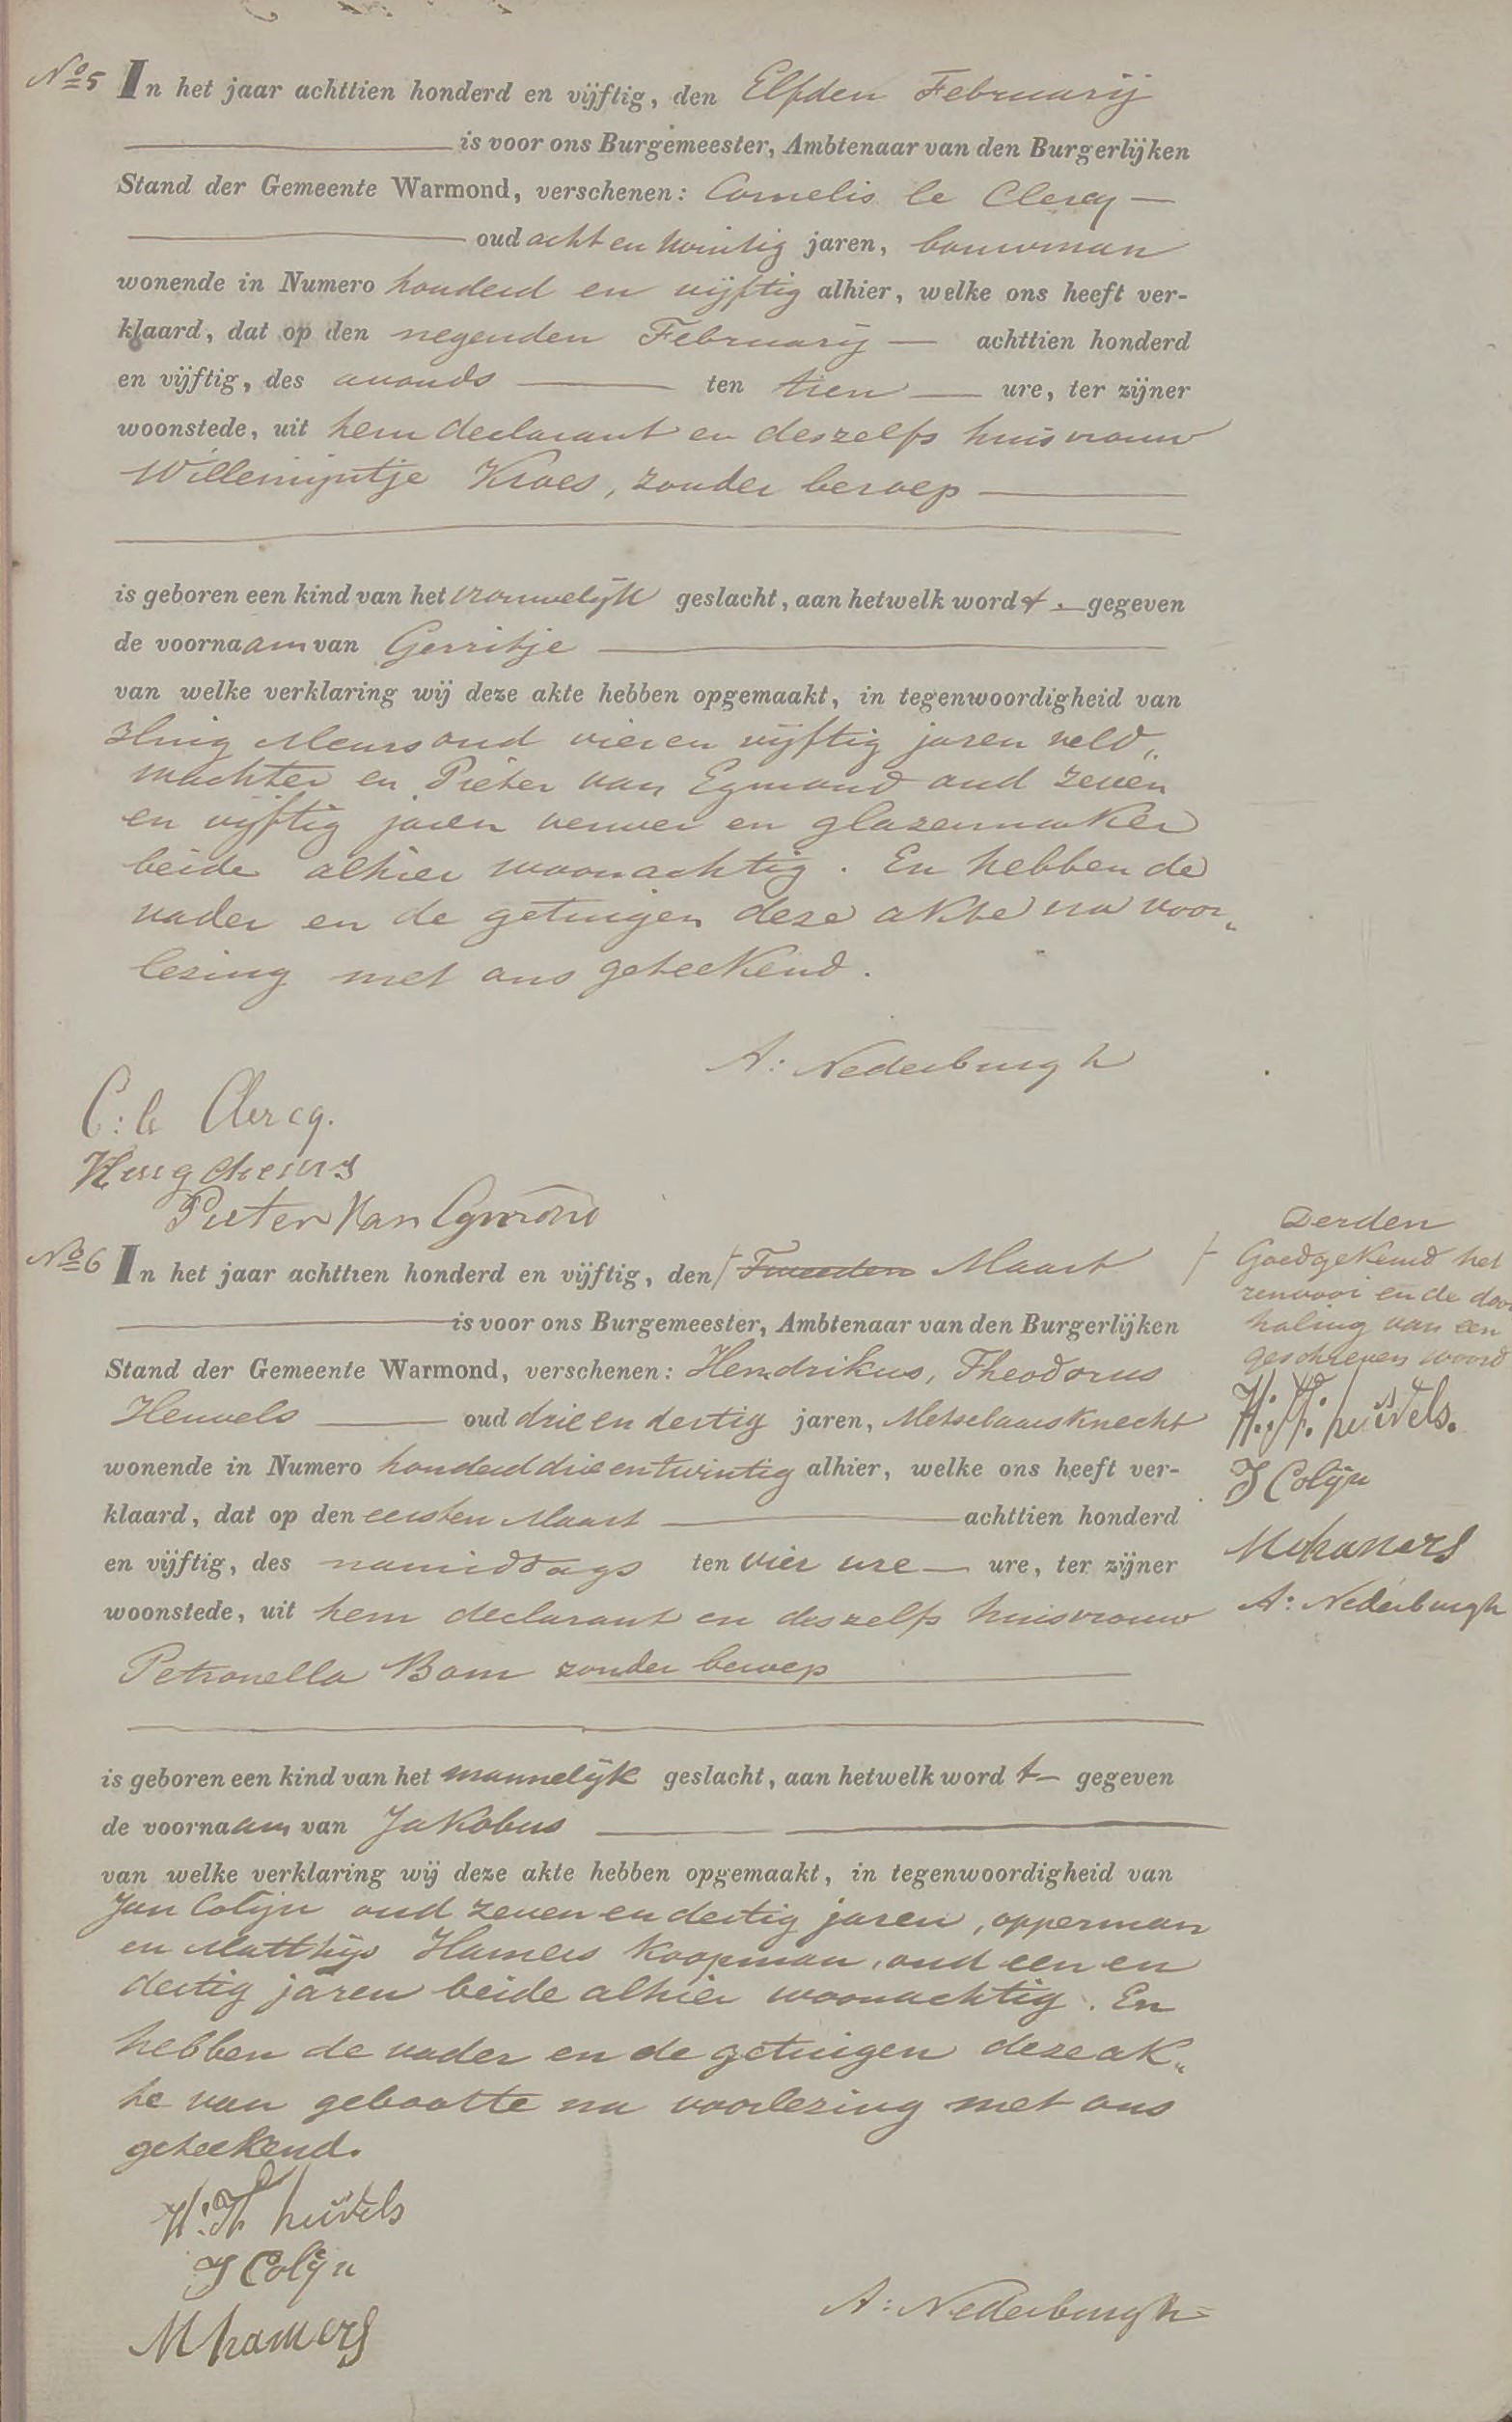 No 5 In het jaar achttien honderd en vijftig, den Elfden Februarij
is voor ons Burgemeester, Ambtenaar van den Burgerlijken
Stand der Gemeente Warmond, verschenen: Cornelis le Clercq
oud acht en twintig jaren, bouwman
wonende in Numero honderd en vijftig alhier, welke ons heeft ver-
klaard, dat op den negenden Februarij achttien honderd
en vijftig, des avonds ten tien ure, ter zijner
woonstede, uit hem declarant en deszelfs huisvrouw
Willemijntje Kroes, zonder beroep
is geboren een kind van het vrouwelijk geslacht, aan hetwelk wordt gegeven
de voornaam van Gerritje
van welke verklaring wij deze akte hebben opgemaakt, in tegenwoordigheid van
Huig Meurs oud vier en vijftig jaren veld„
wachter en Pieter van Egmond oud zeven
en vijftig jaren verwer en glazenmaker
beide alhier woonachtig. En hebben de
vader en de getuigen deze akte na voor„
lezing met ons geteekend.
A: Nederburgh
C: le Clercq.
Huig Meurs
Pieter Van Egmond
No 6 In het jaar achttien honderd en vijftig, den Tweeden Maart
is voor ons Burgemeester, Ambtenaar van den Burgerlijken
Stand der Gemeente Warmond, verschenen: Hendrikus, Theodorus
Heuvels oud drie en dertig jaren, Metselaarsknecht
wonende in Numero honderd drie en twintig alhier, welke ons heeft ver-
klaard, dat op den eersten Maart achttien honderd
en vijftig, des namiddags ten vier ure ure, ter zijner
woonstede, uit hem declarant en deszelfs huisvrouw
Petronella Bom zonder beroep
is geboren een kind van het mannelijk geslacht, aan hetwelk wordt gegeven
de voornaam van Jakobus
van welke verklaring wij deze akte hebben opgemaakt, in tegenwoordigheid van
Jan Colijn oud zeven en dertig jaren, opperman
en Matthijs Hamers koopman, oud een en
dertig jaren beide alhier woonachtig. En
hebben de vader en de getuigen deze ak„
te van geboorte na voorlezing met ons
geteekend.
H: Th heuvels
J Colijn
M hamers
A: Nederburgh
Derden
Goedgekeurd het
renvooi en de door
haling van een
geschreven woord
H: Th: heuvels.
J Colijn
M hamers
A: Nederburgh